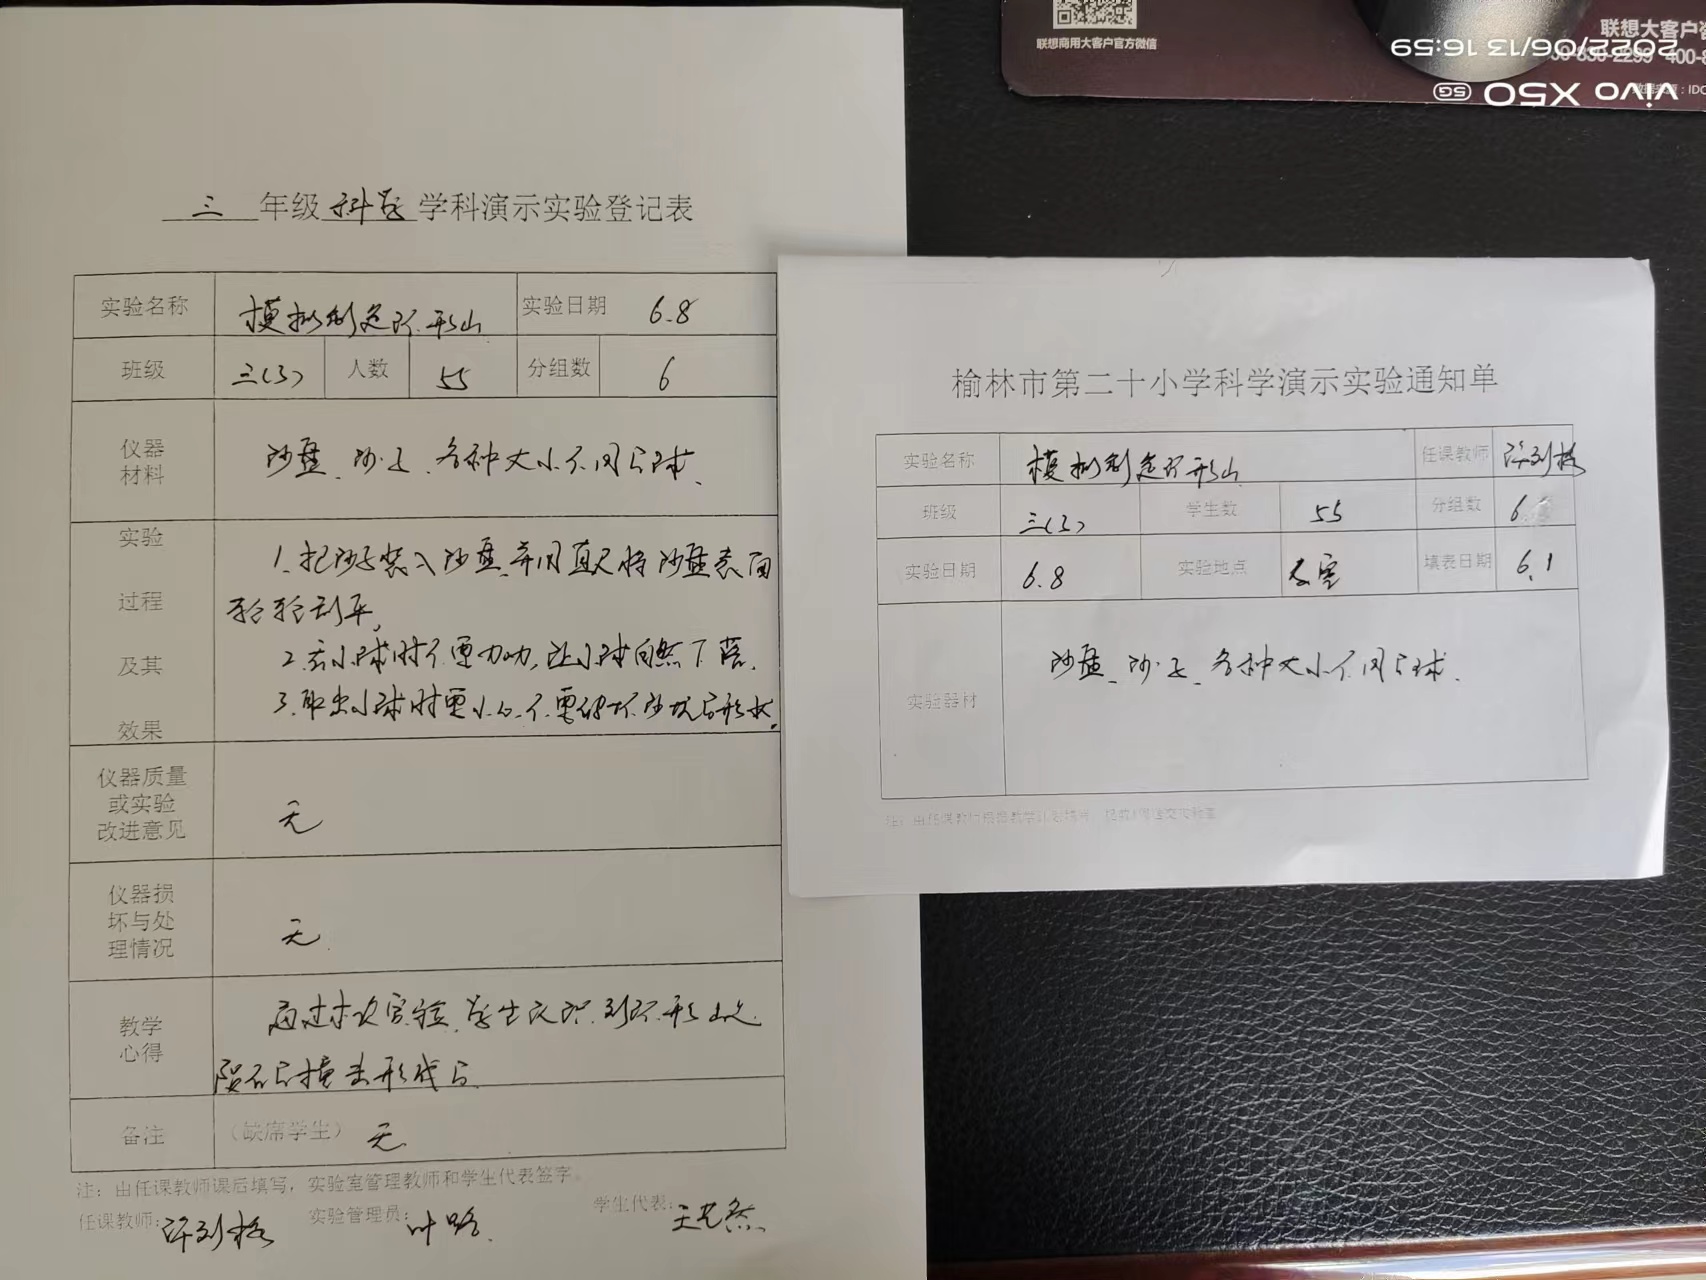 联想商用大客户官方微信
联想大客户
400-8
2022/06/13 16:59
vivo X50 5G
三 年级 科学 学科演示实验登记表
实验名称 模拟制造环形山 实验日期 6.8
班级 三(3) 人数 55 分组数 6
仪器材料 沙盘、沙子、各种大小不同的球、
实验过程及其效果
1、把沙子装入沙盘、并用直尺将沙盘表面
轻轻刮平,
2、丢小球时不要力, 让小球自然下落.
3、取出小球时要小心.不要破坏沙坑的形状.
仪器质量或实验改进意见 无
仪器损坏与处理情况 无.
教学心得 通过本次实验、学生认识到环形山是
陨石的撞击形成的
备注 (缺席学生) 无.
注：由任课教师课后填写，实验室管理教师和学生代表签字。
任课教师: 实验管理员: 叶路. 学生代表:
榆林市第二十小学科学演示实验通知单
实验名称 模拟制造环形山 任课教师
班级 三(3) 学生数 55 分组数 6.
实验日期 6.8 实验地点 教室 填表日期 6.1
实验器材 沙盘、沙子、各种大小不同的球.
注：由任课教师根据教学计划填写，提前